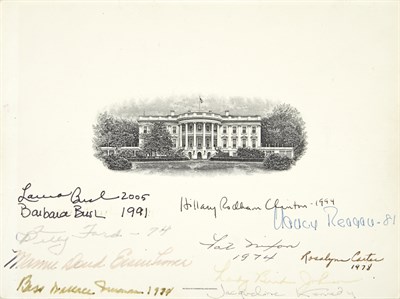 Laura Bush 2005
Barbara Bush 1991
Hillary Rodham Clinton - 1999
Nancy Reagan - 81
Betty Ford - 74
Pat Nixon
1974
Rosalynn Carter
1978
Mamie Doud Eisenhower
Lady Bird Johnson
Bess Wallace Truman 1970
Jacqueline Kennedy